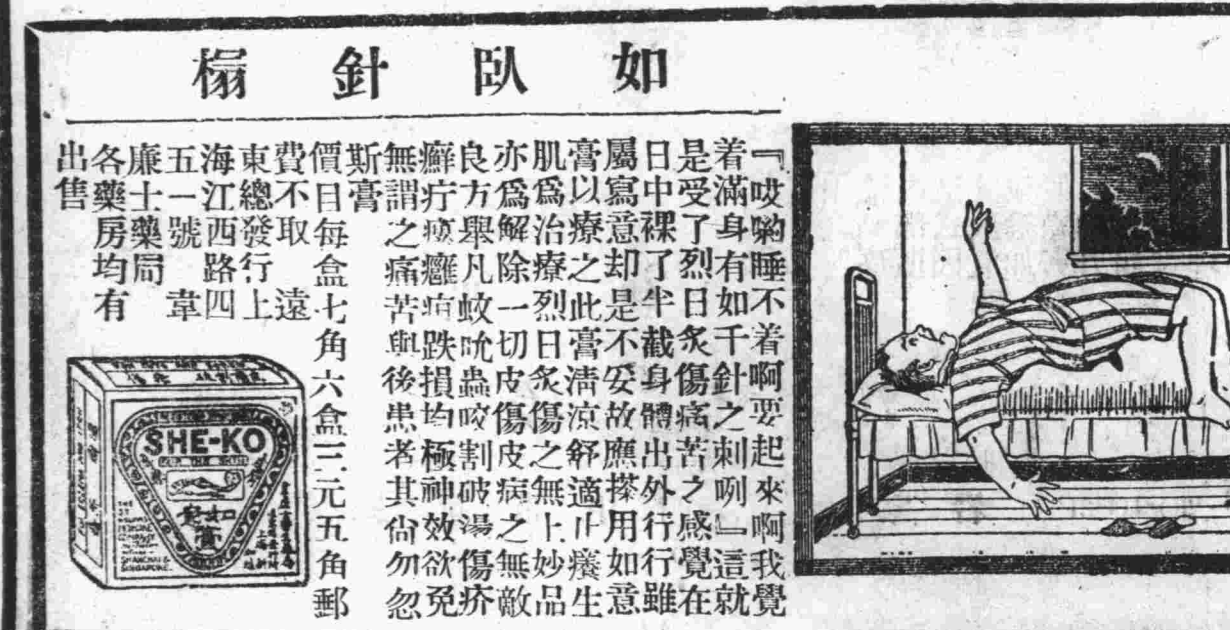 如臥針榻
『哎喲睡不着啊要起來啊我覺
着滿身有如千針之刺咧』這就
是受了烈日炙傷痛苦之感覺在
日中裸了半截身體出外行行雖
屬寫意却是不妥故應搽用如意
膏以療之此膏淸凉舒適止癢生
肌爲治療烈日炙傷之無上妙品
亦爲解除一切皮傷皮病之無敵
良方舉凡蚊吮蟲咬割破湯傷疥
癬疔瘡癰疽跌損均極神效欲免
無謂之痛苦與後患者其尙勿忽
斯膏
價目每盒七角六盒三元五角郵
費不取 遠
東總發行上
海江西路四
五一號 韋
廉士藥局
各藥房均有
出售
SHE-KO
FOR THE SKIN
如意膏
SHANGHAI &
SINGAPORE.